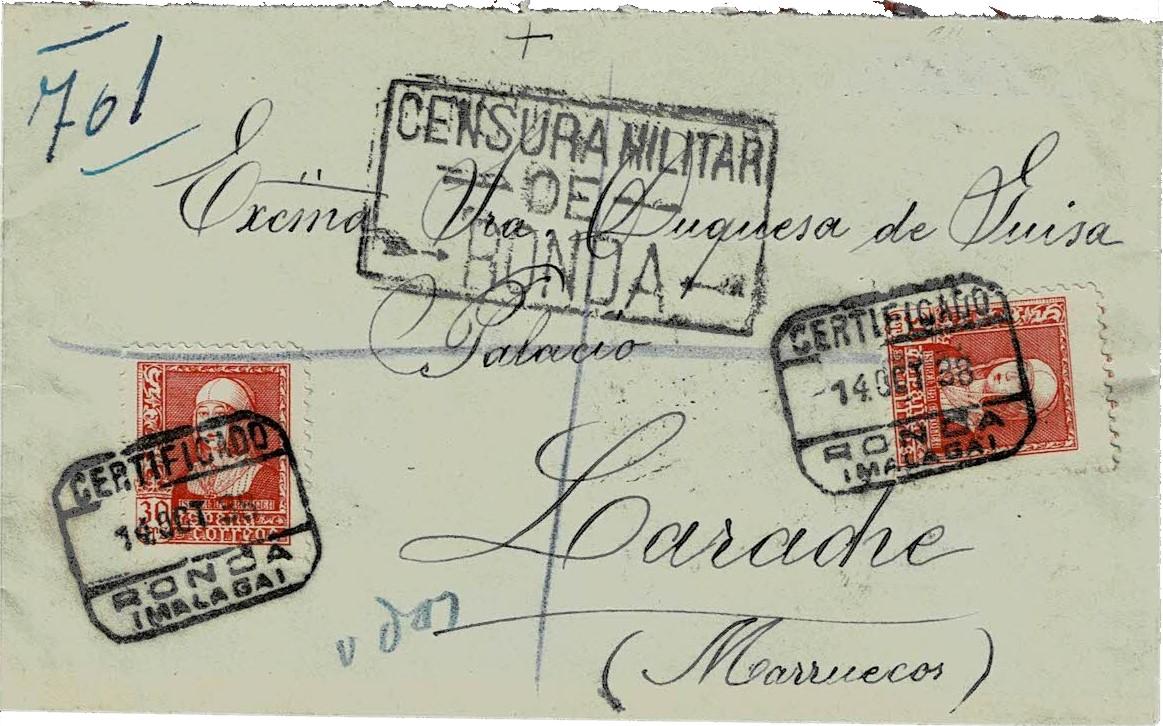 701
CENSURA MILITAR
DE
RONDA
Excma Sra. Duquesa de Guisa
Palacio
CERTIFICADO
14 OCT 38
RONDA
(MALAGA)
CERTIFICADO
14 OCT
RONDA
(MALAGA)
30
ESPAÑA
CORREOS
Larache
(Marruecos)